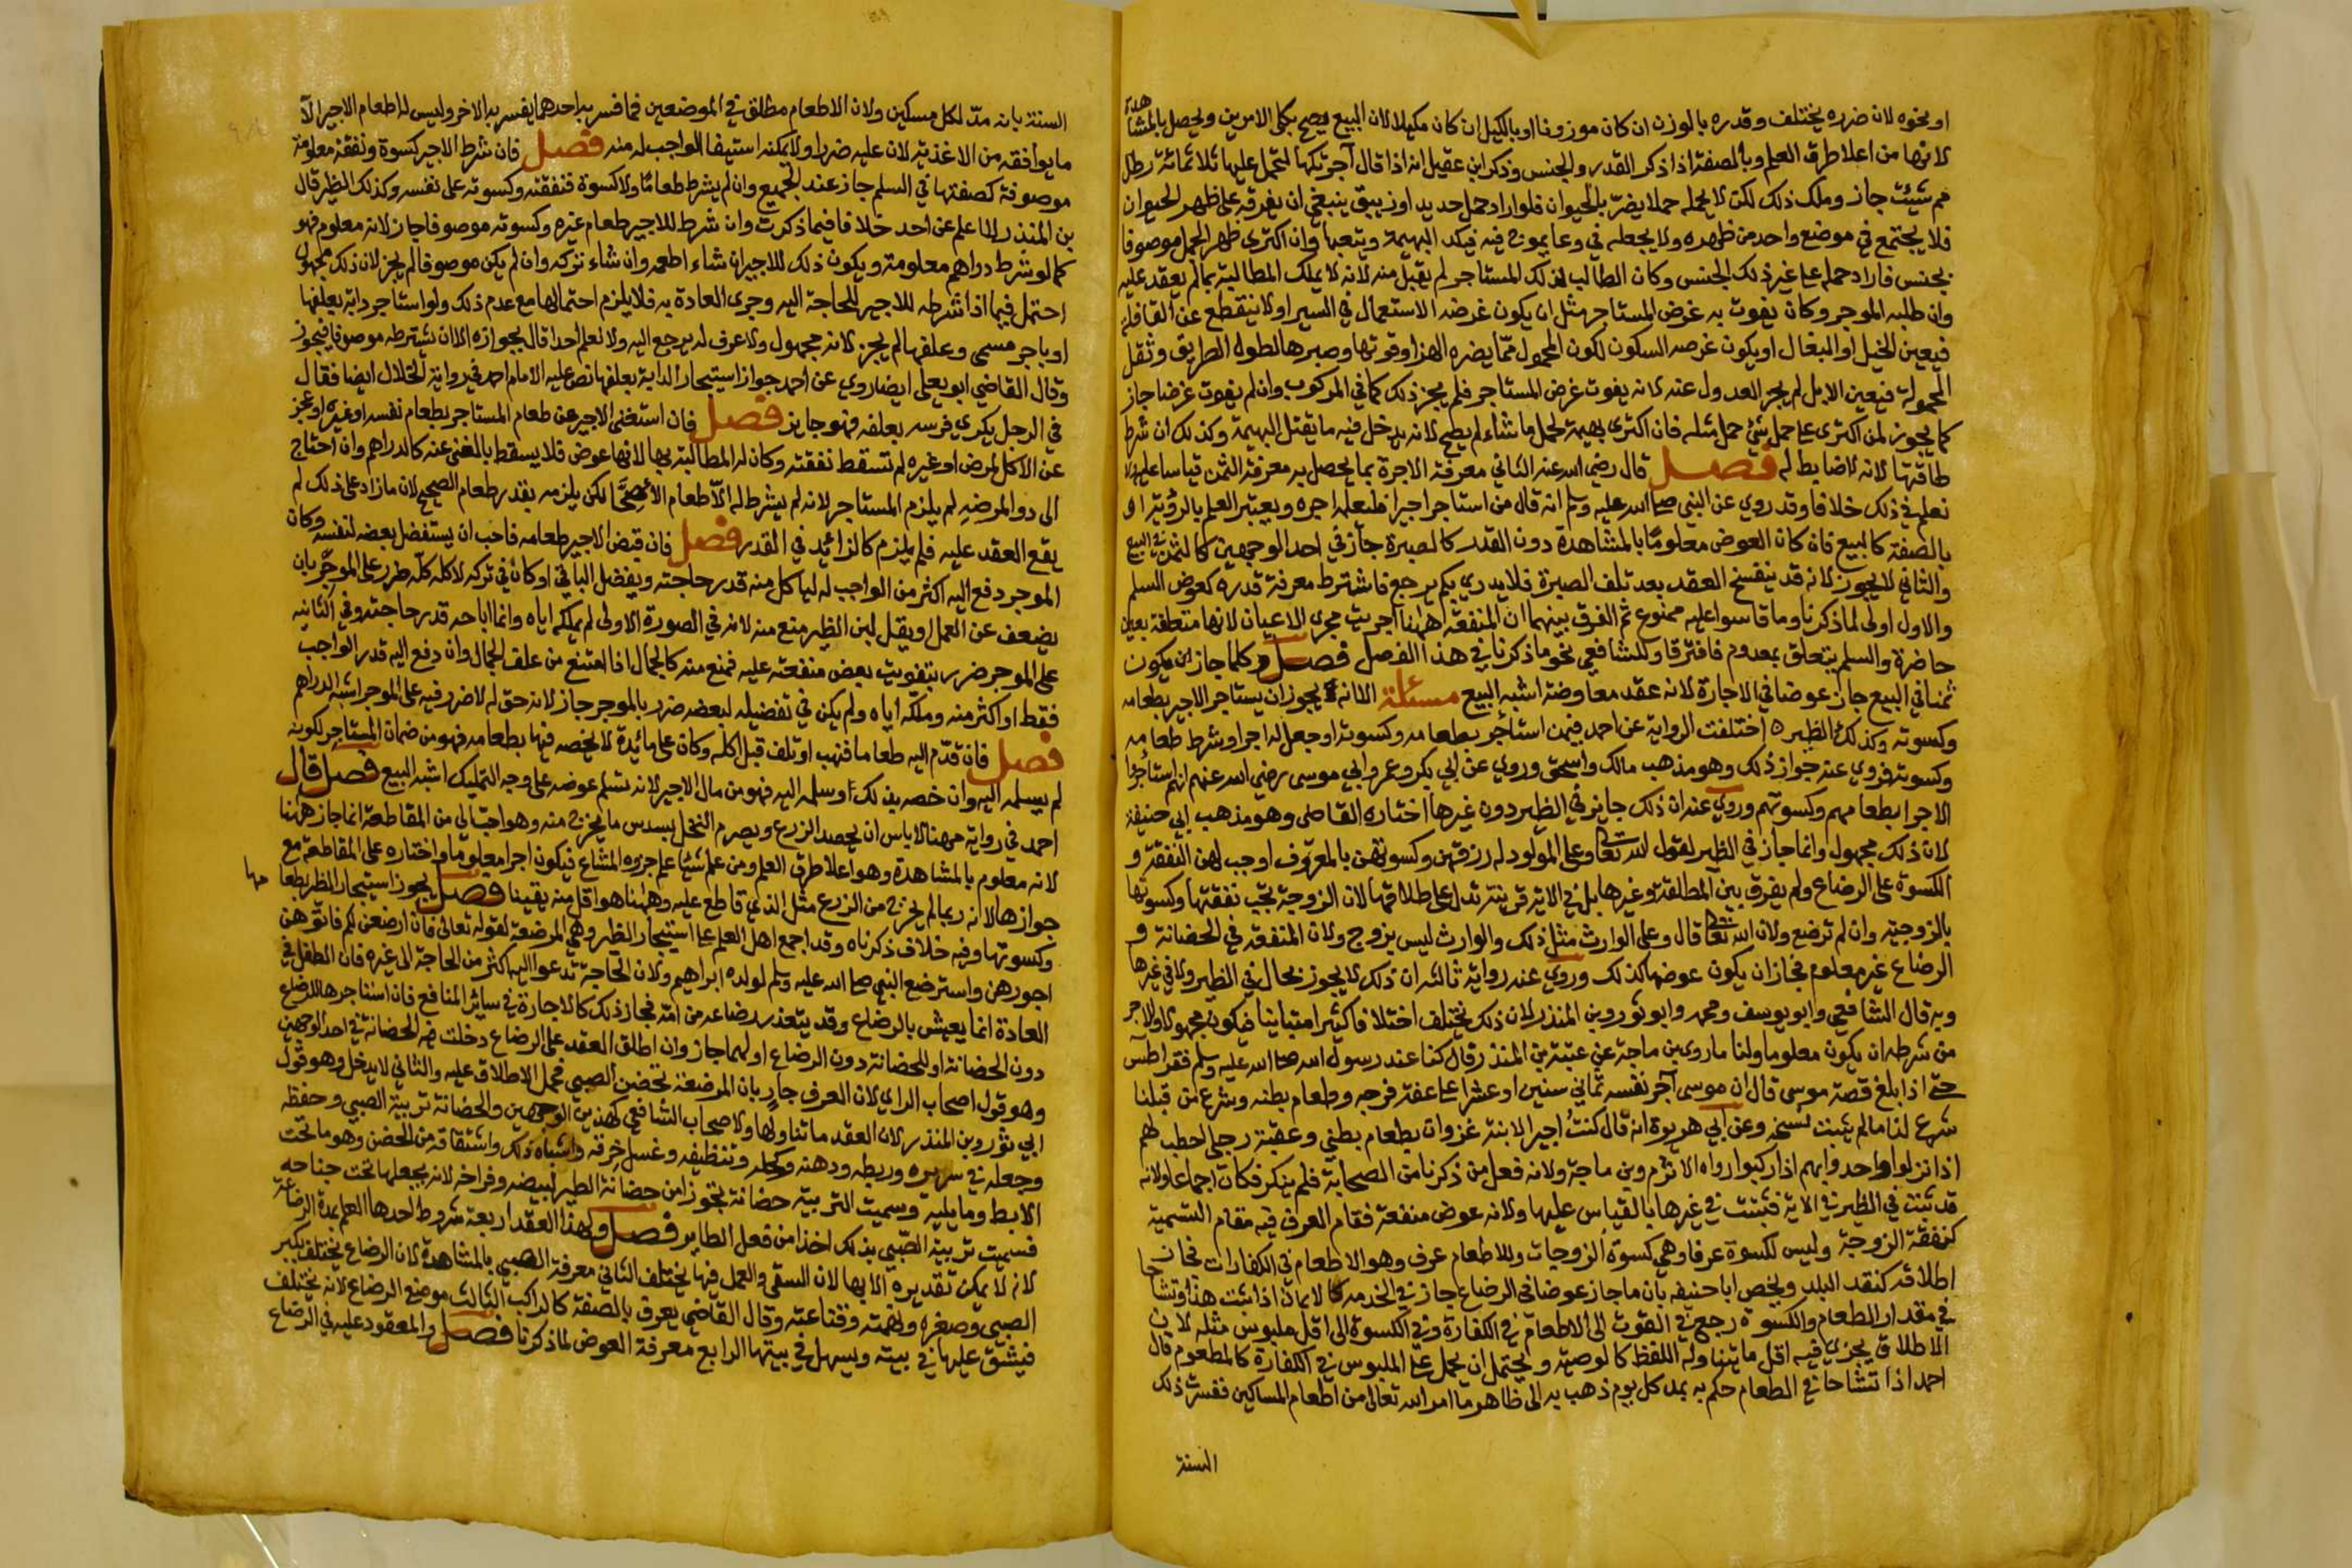 او نحوه لان ضرره يختلف وقدره بالوزن ان كان موزونا او بالكيل ان كان مكيلا لان البيع يصح بكلى الامرين ويحصل بالمشاهدة
لانها من اعلا طرق العلم وبالصفة اذا ذكر القدر والجنس وذكر ابن عقيل انه اذا قال آجرتكها لتحمل عليها ثلاثمائة رطل
مم شئت جاز وملك ذلك لكن لا يحمله حملا يضر بالحيوان فلو اراد حمل حديد او زيبق ينبغي ان يفرقه على ظهر الحيوان
فلا يجتمع في موضع واحد من ظهره ولا يجعله في وعا يموج فيه فيكد البهيمة ويتعبها وان اكترى ظهر الحمل موصوفا
بجنس فاراد حمله على غير ذلك الجنس وكان الطالب لذلك المستاجر لم يقبل منه لانه لا يملك المطالبة بما لم يعقد عليه
وان طلبه الموجر وكان يفوت به غرض المستاجر مثل ان يكون غرضه الاستعجال في السير او لا ينقطع عن القافلة
فيعين الخيل او البغال او يكون غرصه السكون لكون المحمول مما يضره الهز او قوتها وصبرها لطول الطريق وثقل
المحمولة فيعين الابل لم يجز العدول عنه لانه يفوت غرض المستاجر فلم يجز ذلك كما في المركوب وان لم يفوت غرضا جاز
كما يجوز لمن اكترى على حمل شئ حمل مثله فان اكترى بهيمة لحمل ما شاء لم يصح لانه يدخل فيه ما يقتل البهيمة وكذلك ان شرط
طاقتها لانه لا ضابط له فصل قال رضي الله عنه الثاني معرفة الاجرة بما يحصل به معرفة الثمن قياسا عليه ولا
نعلم في ذلك خلافا وقد روي عن النبي صلى الله عليه وسلم انه قال من استاجر اجيرا فليعلمه اجره ويعتبر العلم بالرؤية او
بالصفة كالبيع فان كان العوض معلوما بالمشاهدة دون القدر كالصبرة جاز في احد الوجهين كالثمن في البيع
والثاني لا يجوز لانه قد ينفسخ العقد بعد تلف الصبرة فلا يدري بكم يرجع فاشترط معرفة قدره كعوض السلم
والاول اولى لما ذكرنا وما قاسوا عليه ممنوع ثم الفرق بينهما ان المنفعة ههنا اجريت مجرى الاعيان لانها متعلقة بعين
حاضرة والسلم يتعلق بمعدوم فافترقا وللشافعي نحو ما ذكرنا في هذا الفصل فصل وكلما جاز ان يكون
ثمنا في البيع جاز عوضا في الاجارة لانه عقد معاوضة اشبه البيع مسئلة الا انه يجوز ان يستاجر الاجير بطعامه
وكسوته وكذلك الظير ه اختلفت الرواية عن احمد فيمن استأجر بطعامه وكسوته او جعل له اجرا ويشرط طعامه
وكسوته فروي عنه جواز ذلك وهو مذهب مالك واسحق وروي عن ابي بكر وعمر وابي موسى رضي الله عنهم انهم استأجروا
الاجرا بطعامهم وكسوتهم وروي عنه ان ذلك جايز في الظير دون غيرها اختاره القاضى وهو مذهب ابي حنيفة
لان ذلك مجهول وانما جاز في الظير لقول الله تعالى وعلى المولود له رزقهن وكسوتهن بالمعروف اوجب لهن النفقة و
الكسوة على الرضاع ولم يفرق بين المطلقة وغيرها بل في الاية قرينة تدل على طلاقها لان الزوجة تجب نفقتها وكسوتها
بالزوجية وان لم ترضع ولان الله تعالى قال وعلى الوارث مثل ذلك والوارث ليس بزوج ولان المنفعة في الحضانة و
الرضاع غير معلوم فجاز ان يكون عوضها كذلك وروي عنه رواية ثالثة ان ذلك لا يجوز بحال في الظير ولا في غيرها
وبه قال الشافعي وابو يوسف ومحمد وابو ثور وبن المنذر لان ذلك يختلف اختلافا كثيرا متباينا فيكون مجهولا والاجر
من شرطه ان يكون معلوما ولنا ما روى بن ماجة عن عتبة بن المنذر قال كنا عند رسول الله صلى الله عليه وسلم فقرا طس
حتى اذا بلغ قصة موسى قال ان موسى آجر نفسه ثماني سنين او عشرا على عفة فرجه وطعام بطنه وشرع من قبلنا
شرع لنا ما لم يثبت نسخه وعن ابي هريرة انه قال كنت اجيرا لابنة غزوان بطعام بطني وعقبة رجلي احطب لهم
اذا نزلوا واحدو بهم اذا ركبوا رواه الاثرم وبن ماجة ولانه فعل من ذكرنا من الصحابة فلم ينكر فكان اجماعا ولانه
قد ثبت في الظير في الاية فثبت في غيرها بالقياس عليها ولانه عوض منفعة فقام العرف فيه مقام التسمية
كنفقة الزوجة وليس للكسوة عرفا وهي كسوة الزوجات وللاطعام عرف وهو الاطعام في الكفارات فجاز
اطلاقه كنقد البلد ويخص ابا حنيفه بان ما جاز عوضا في الرضاع جاز في الخدمة كالاثمان اذا ثبت هذا وتشاحا
في مقدار الطعام والكسوة رجع في القوت الى الاطعام في الكفارة وفي الكسوة الى اقل ملبوس مثله لان
الاطلاق يجزي فيه اقل ما يتناوله اللفظ كالوصية ويحتمل ان يحمل على الملبوس في الكفارة كالمطعوم قال
احمد اذا تشاحا في الطعام حكم به بمد كل يوم ذهب به الى ظاهر ما امر الله تعالى من اطعام المساكين ففسرت ذلك
السنة
السنة بانه مدّ لكل مسكين ولان الاطعام مطلق في الموضعين فما فسر به احدهما يفسر به الاخر وليس له اطعام الاجير الا
ما يوافقه من الاغذية لان عليه ضررا ولا يمكنه استيفا الواجب له منه فصل فان شرط الاجير كسوة ونفقة معلومة
موصوفة كصفتها في السلم جاز عند الجميع وان لم يشرط طعاما ولا كسوة فنفقته وكسوته على نفسه وكذلك الظير قال
بن المنذر لا اعلم عن احد خلافا فيما ذكرت وان شرط للاجير طعام غيره وكسوته موصوفا جاز لانه معلوم فهو
كما لو شرط دراهم معلومة ويكون ذلك للاجير ان شاء اطعمه وان شاء تركه وان لم يكن موصوفا لم يجز لان ذلك مجهول
احتمل فيما اذا شرطه للاجير للحاجة اليه وجرى العادة به فلا يلزم احتمالها مع عدم ذلك ولو استاجر دابة بعلفها
او باجر مسمى وعلفها لم يجز لانه مجهول ولا عرف له يرجع اليه ولا نعلم احدا قال بجوازه الا ان يشترطه موصوفا فيجوز
وقال القاضي ابو يعلى ايضا روي عن احمد جواز استيجار الدابة بعلفها نص عليه الامام احمد في رواية الخلال ايضا فقال
في الرجل يكري فرسه بعلفه فهو جايز فصل فان استغنى الاجير عن طعام المستاجر بطعام نفسه او غيره او عجز
عن الاكل لمرض او غيره لم تسقط نفقته وكان له المطالبة بها لانها عوض فلا يسقط بالغنى عنه كالدراهم وان احتاج
الى دوا لمرضه لم يلزم المستاجر لانه لم يشرط له الا طعام الاصحا لكن يلزمه بقدر طعام الصحيح لان ما زاد على ذلك لم
يقع العقد عليه فلم يلزم كالزائد في القدر فصل فان قبض الاجير طعامه فاحب ان يستفضل بعضه لنفسه وكان
الموجر دفع اليه اكثر من الواجب له لياكل منه قدر حاجته ويفضل الباقي او كان في تركه لاكله كله ضرر على الموجر بان
يضعف عن العمل او يقل لبن الظير منع منه لانه في الصورة الاولى لم يملكه اياه وانما اباحه قدر حاجته وفي الثانيه
على الموجر ضرر بتفويت بعض منفعته عليه فمنع منه كالجمال اذا امتنع من علف الجمال وان دفع اليه قدر الواجب
فقط او اكثر منه وملكه اياه ولم يكن في تفضيله لبعضه ضرر بالموجر جاز لانه حق له لا ضرر فيه على الموجر اشبه الدراهم
فصل فان قدّم اليه طعاما فنهب او تلف قبل اكله وكان على مائدة لا يخصه فيها بطعامه فهو من ضمان المستاجر لكونه
لم يسلمه اليه وان خصه بذلك او سلمه اليه فهو من مال الاجير لانه تسلم عوضه على وجه التمليك اشبه البيع فصل قال
احمد في رواية مهنا لا باس ان يحصد الزرع ويصرم النخل بسدس ما يخرج منه وهو احب الي من المقاطعة انما جاز ههنا
لانه معلوم بالمشاهدة وهو اعلا طرق العلم ومن علم شيئا علم جزوه المشاع فيكون اجرا معلوما واختاره على المقاطعة مع
جوازها لانه ربما لم يخرج من الزرع مثل الذي قاطع عليه وههنا هو اقل منه يقينا فصل يجوز استيجار الظير بطعامها
وكسوتها وفيه خلاف ذكرناه وقد اجمع اهل العلم على استيجار الظير وهي المرضعة لقوله تعالى فان ارضعن لكم فاتوهن
اجورهن واسترضع النبي صلى الله عليه وسلم لولده ابراهيم ولان الحاجة تدعوا اليه اكثر من الحاجة الى غيره فان الطفل في
العادة انما يعيش بالرضاع وقد يتعذر رضاعه من امه فجاز ذلك كالاجارة في سائر المنافع فان استاجرها للرضاع
دون الحضانة او للحضانة دون الرضاع او لهما جاز وان اطلق العقد على الرضاع دخلت فيه الحضانة في احد الوجهين
وهو قول اصحاب الراي لان العرف جار بان المرضعة تحضن الصبي فحمل الاطلاق عليه والثاني لا يدخل وهو قول
ابي ثور وبن المنذر لان العقد ما تناولها ولاصحاب الشافعي كهذين الوجهين والحضانة تربية الصبي وحفظه
وجعله في سريره وربطه ودهنه وكحله وتنظيفه وغسل خرقه واشباه ذلك واشتقاقه من الحضن وهو ما تحت
الابط وما يليه وسميت التربية حضانة تجوزا من حضانة الطير لبيضه وفراخه لانه يجعلها تحت جناحه
فسميت تربية الصبي بذلك اخذا من فعل الطاير فصل ولهذا العقد اربعة شروط احدها العلم بمدة الرضاعة
لانه لا يمكن تقديره الا بها لان السقى والعمل فيها يختلف الثاني معرفة الصبي بالمشاهدة لان الرضاع يختلف بكبر
الصبي وصغره ونهمته وقناعته وقال القاضي يعرف بالصفة كالراكب الثالث موضع الرضاع لانه يختلف
فيشق عليها في بيته ويسهل في بيتها الرابع معرفة العوض لما ذكرنا فصل والمعقود عليه في الرضاع